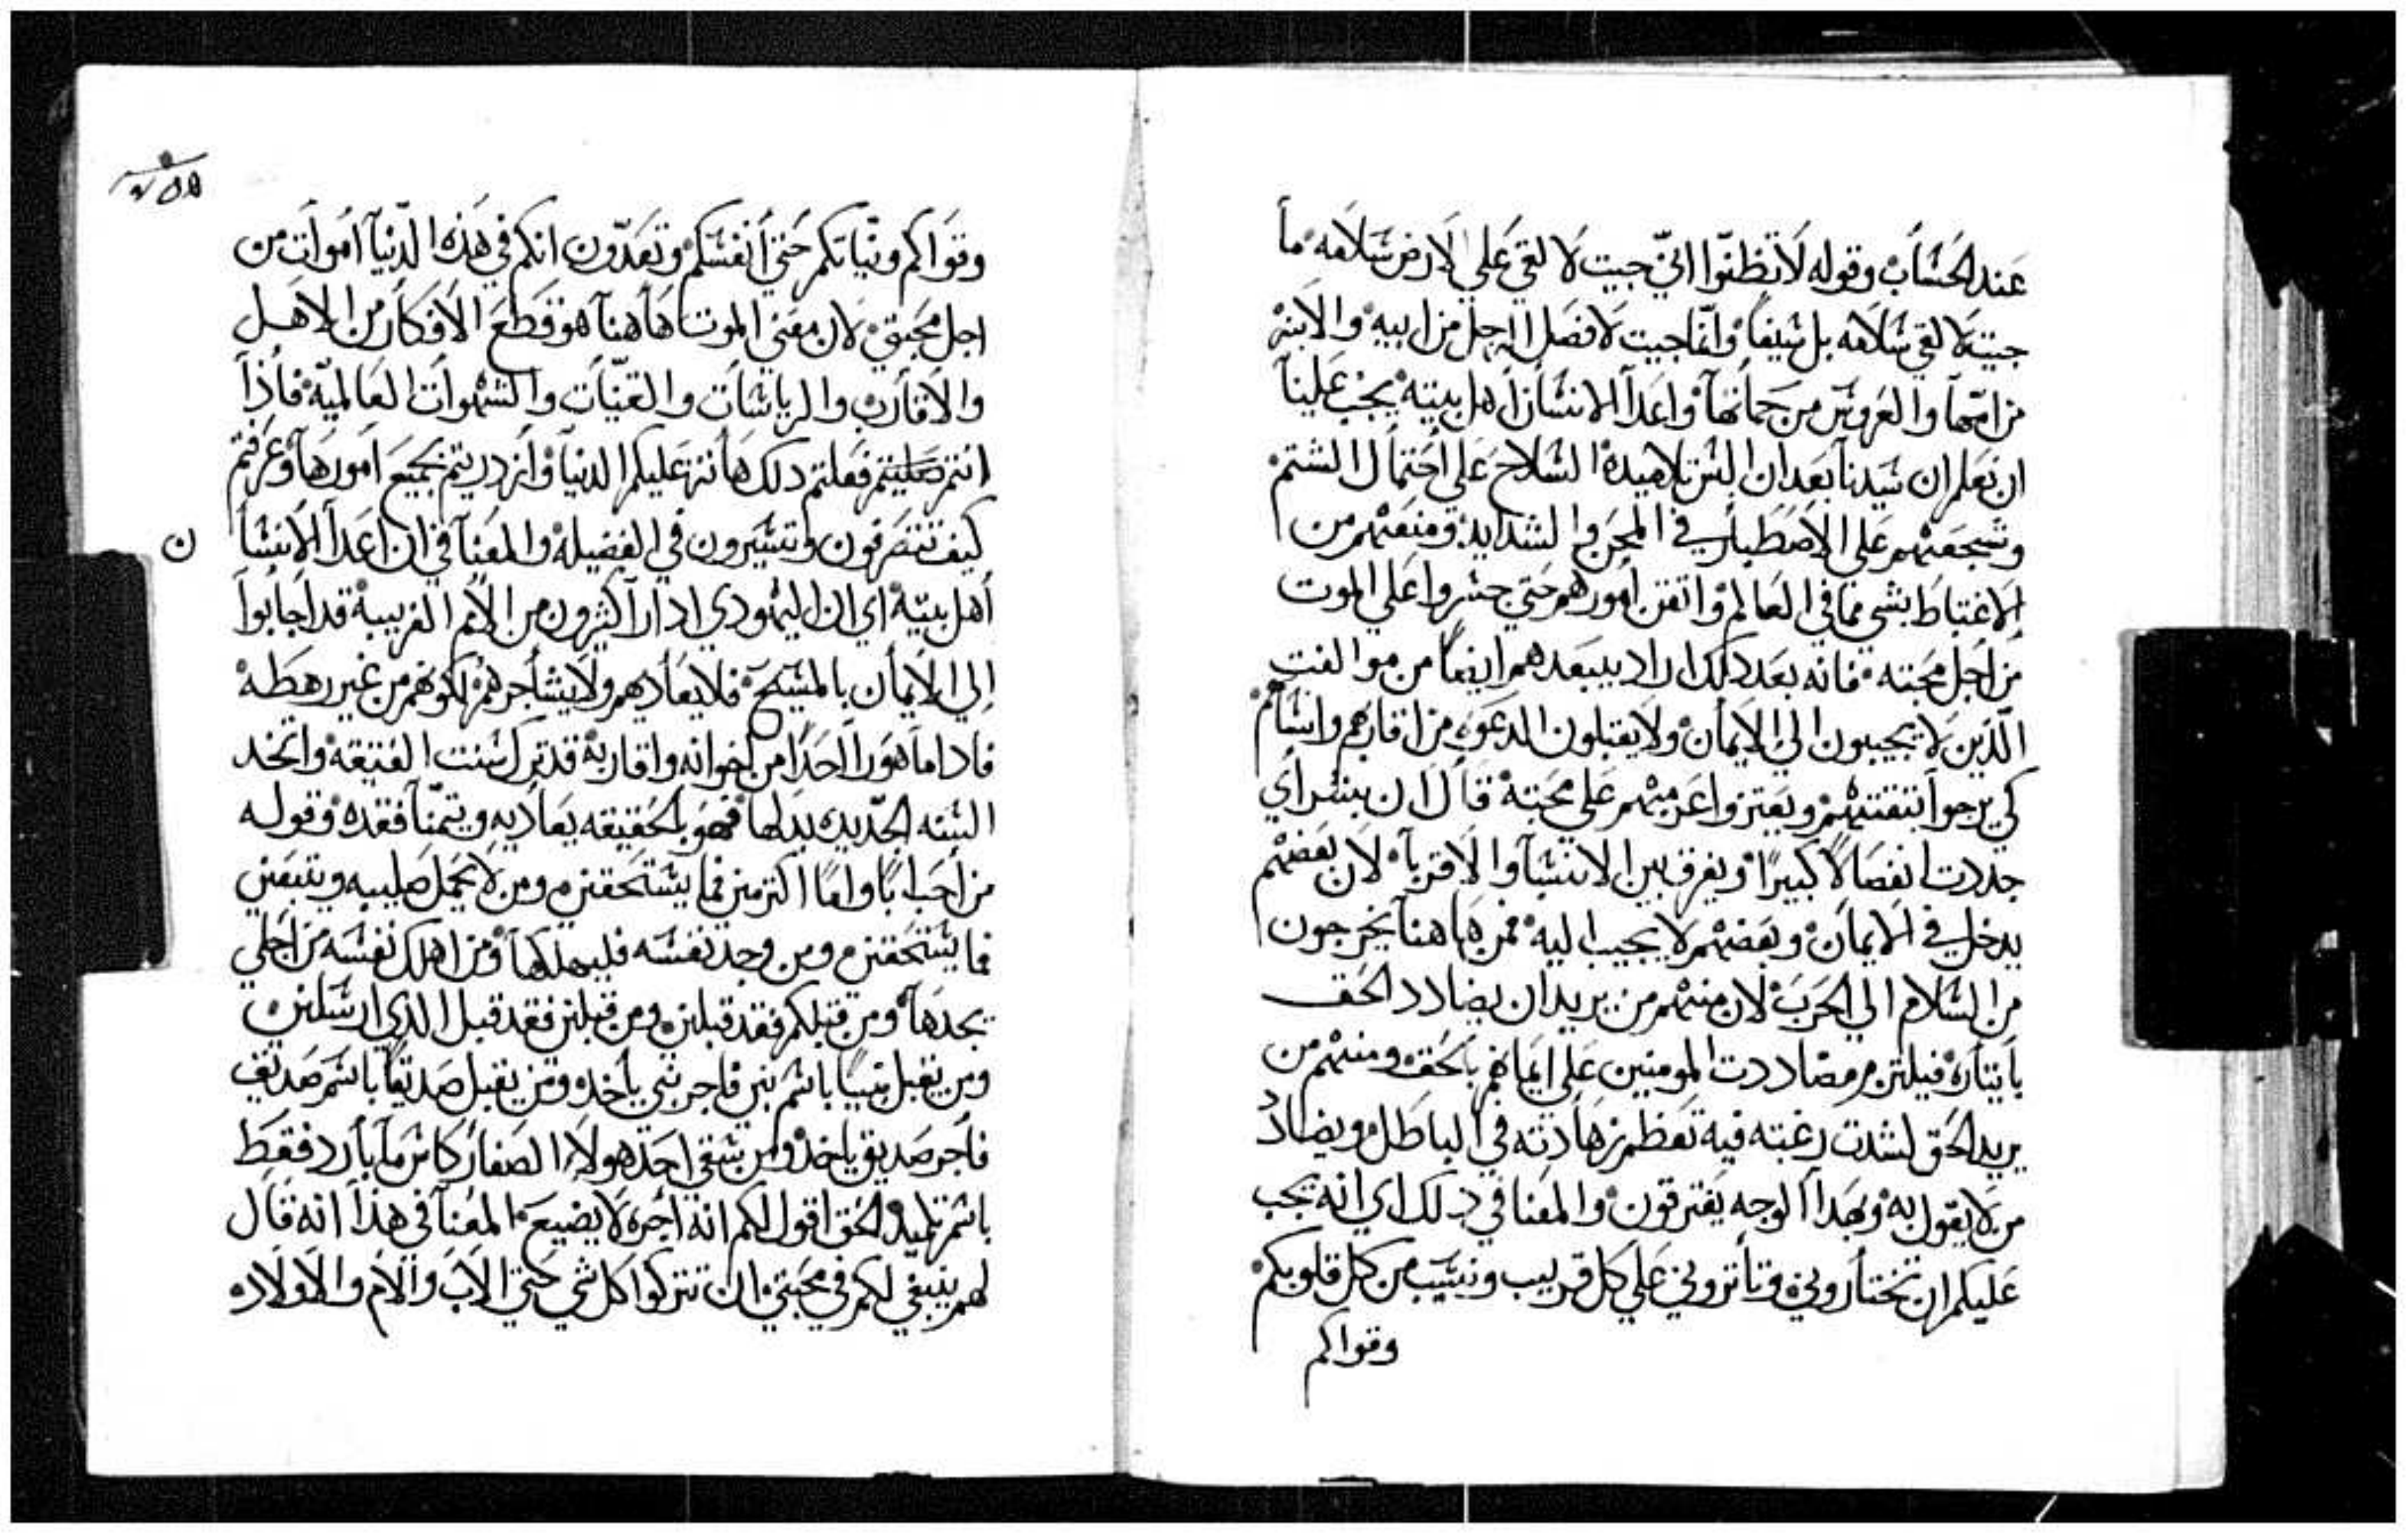 عند الحساب وقوله لا تظنوا اني جيت لالقي علي الارض سلامه ما
جيت لالقي سلامه بل سيفا وانما جيت لافصل الرجل من ابيه والابنه
من امها والعروس من حماتها واعدا الانسان اهل بيته يجب علينا
ان نعلم ان سيدنا بعد ان البس تلاميده السلاح علي احتمال الشتم
وشجعهم علي الاصطبار في المحن والشدايد ومنعهم من
الاغتباط بشي مما في العالم واتقن امورهم حتي جسروا علي الموت
من اجل محبته فانه بعد دلك اراد يبعدهم ايضا من موالفت
الدين لا يجيبون الي الايمان ولا يقبلون الدعوه من اقاربهم وانسابهم
كي يرجوا بتقتهم ويعتزوا عزميهم علي محبته قال ان بنشراي
جددت انفصالا كبيرا ويفرق بين الانسبا والاقربا لان بعضهم
يدخل في الايمان وبعضهم لا يجيب اليه فمن هاهنا يخرجون
من السلام الي الحرب لان منهم من يريد ان يضادد الحق
بايتاره فيلتزم مصاددت المومنين علي ايمانهم بالحق ومنهم من
يريد الحق لشدت رغبته فيه تعظم زهادته في الباطل ويضاد
من لا يقول به وبهدا الوجه يفترقون والمعنا في دلك اي انه يجب
عليكم ان تختاروني وتاتروني علي كل قريب ونسيب من كل قلوبكم
وقواكم
وقواكم ونياتكم حتي انفسكم وتعدون انكم في هذه الدنيا اموات من
اجل محبتي لان معني الموت هاهنا هو قطع الافكار من الاهل
والاقارب والرياسات والقنيات والشهوات العالميه فاذا
انتم صليتم فعلتم دلك هانت عليكم الدنيا وازدريتم بجميع امورها وعرفتم
كيف تتصرفون وتسيرون في الفضيله والمعنا في ان اعدا الانسا
ن
اهل بيته اي ان اليهودي ادا راكثيرون من الامم الغريبة قد اجابوا
الي الايمان بالمسيح فلا يعاديهم ولا يشاجرهم لكونهم من غير رهطه
فاداما هو را احدا من اخوانه واقاربه قد ترك سنت العتيقه واتخد
السنه الجديده بدلها فهو بالحقيقه يعاديه ويتمنا فقده وقوله
من احب ابا واما اكتر مني فما يستحقني ومن لا يحمل صليبه ويتبعني
فما يستحقني ومن وجد نفسه فليهلكها ومن اهلك نفسه من اجلي
يجدها ومن قبلكم فقد قبلني ومن قبلني فقد قبل الدي ارسلني
ومن يقبل نبيا باسم نبي فاجر نبي ياخده ومن يقبل صديقا باسم صديق
فاجر صديق ياخد ومن سقي احد هولاء الصغار كاس ما بارد فقط
باسم تلميد الحق اقول لكم انه اجره لا يضيع المعنا في هذا انه قال
لهم ينبغي لكم في محبتي ان تتركوا كل شي حتي الاب والام والاولاد